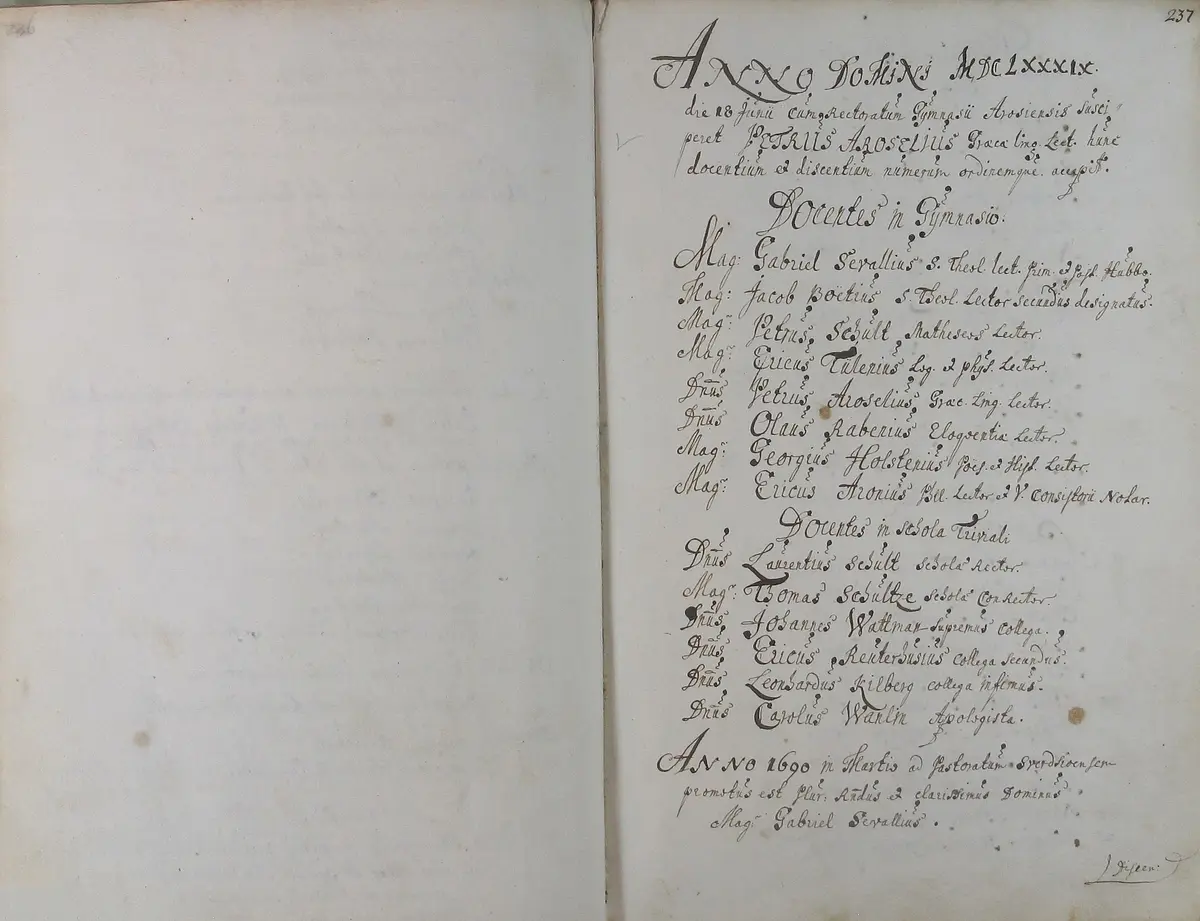 237
ANNO DOMINI MDCLXXXIX.
die 18 Junii cum Rectoratum Gymnasii Arosiensis susci
peret PETRUS AROSELIUS Græcæ ling. Lect. hunc
docentium et discentium numerum ordinemque accepit.
Docentes in Gymnasio.
Mag: Gabriel Sevallius S. Theol. lect. prim. et past. Hubbo.
Mag: Jacob Boëtius S. Theol. Lector secundus designatus.
Mag: Petrus Schult Matheseos Lector.
Mag: Ericus Tulenius Log. et phys. Lector.
Dnus Petrus Aroselius Græc. Ling. Lector.
Dnus Olaus Rabenius Eloquentiæ Lector.
Mag: Georgius Holstenius Poës. et Hist. Lector.
Mag: Ericus Aronius Lector et V. Consistorii Notar.
Docentes in schola Triviali
Dnus Laurentius Schult Scholæ Rector.
Mag: Thomas Schultze Scholæ ConRector.
Dnus Johannes Wattman Supremus Collega.
Dnus Ericus Reuterhusius Collega secundus.
Dnus Leonhardus Kilberg collega infimus.
Dnus Carolus Wanlin Apologista.
ANNO 1690 in Martio ad Pastoratum Sverdsioensem
promotus est Plur: Rndus et clarissimus Dominus
Mag: Gabriel Sevallius.
Discen: